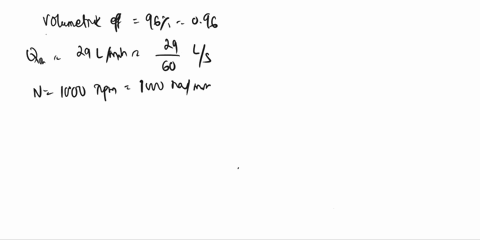 volumetric eff = 96% = 0.96
Qa = 29 L/min = 29/60 L/s
N = 1000 rpm = 1000 rev/min